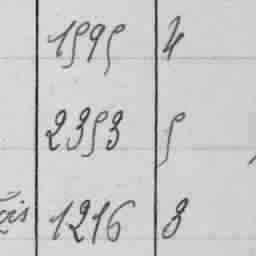 1595 4
2353 5
çais 1216 3